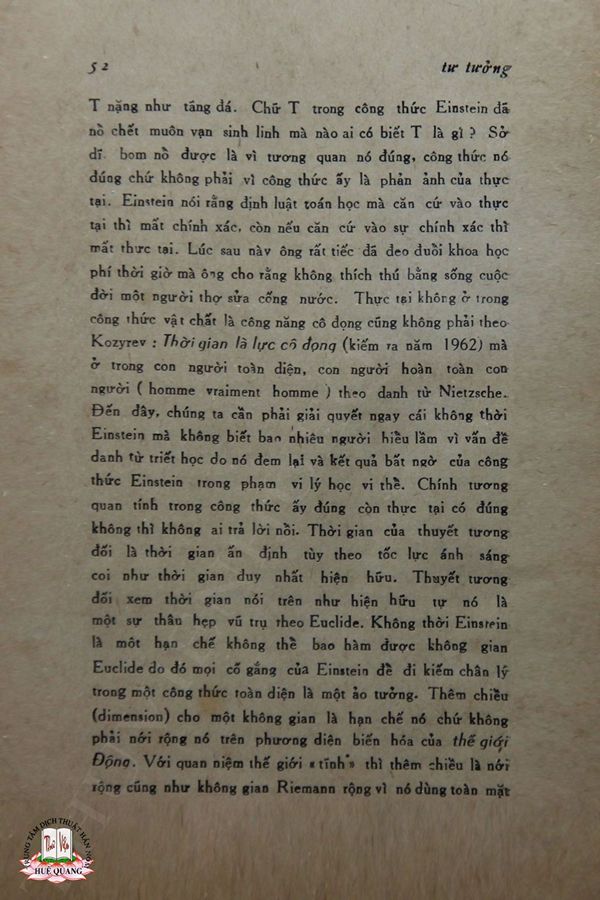 52 tư tưởng
T nặng như tảng đá. Chữ T trong công thức Einstein đã
nổ chết muôn vạn sinh linh mà nào ai có biết T là gì ? Sở
dĩ bom nổ được là vì tương quan nó đúng, công thức nó
đúng chứ không phải vì công thức ấy là phản ảnh của thực
tại. Einstein nói rằng định luật toán học mà căn cứ vào thực
tại thì mất chính xác, còn nếu căn cứ vào sự chính xác thì
mất thực tại. Lúc sau này ông rất tiếc đã đeo đuổi khoa học
phí thời giờ mà ông cho rằng không thích thú bằng sống cuộc
đời một người thợ sửa cống nước. Thực tại không ở trong
công thức vật chất là công năng cô đọng cũng không phải theo
Kozyrev : Thời gian là lực cô đọng (kiếm ra năm 1962) mà
ở trong con người toàn diện, con người hoàn toàn con
người ( homme vraiment homme ) theo danh từ Nietzsche.
Đến đây, chúng ta cần phải giải quyết ngay cái không thời
Einstein mà không biết bao nhiêu người hiểu lầm vì vấn đề
danh từ triết học do nó đem lại và kết quả bất ngờ của công
thức Einstein trong phạm vi lý học vi thể. Chính tương
quan tính trong công thức ấy đúng còn thực tại có đúng
không thì không ai trả lời nổi. Thời gian của thuyết tương
đối là thời gian ấn định tùy theo tốc lực ánh sáng
coi như thời gian duy nhất hiện hữu. Thuyết tương
đối xem thời gian nói trên như hiện hữu tự nó là
một sự thâu hẹp vũ trụ theo Euclide. Không thời Einstein
là một hạn chế không thể bao hàm được không gian
Euclide do đó mọi cố gắng của Einstein để đi kiếm chân lý
trong một công thức toàn diện là một ảo tưởng. Thêm chiều
(dimension) cho một không gian là hạn chế nó chứ không
phải nới rộng nó trên phương diện biến hóa của thế giới
Động. Với quan niệm thế giới «tĩnh» thì thêm chiều là nới
rộng cũng như không gian Riemann rộng vì nó dùng toàn mặt
TRUNG TÂM DỊCH THUẬT HÁN NÔM
HUỆ QUANG